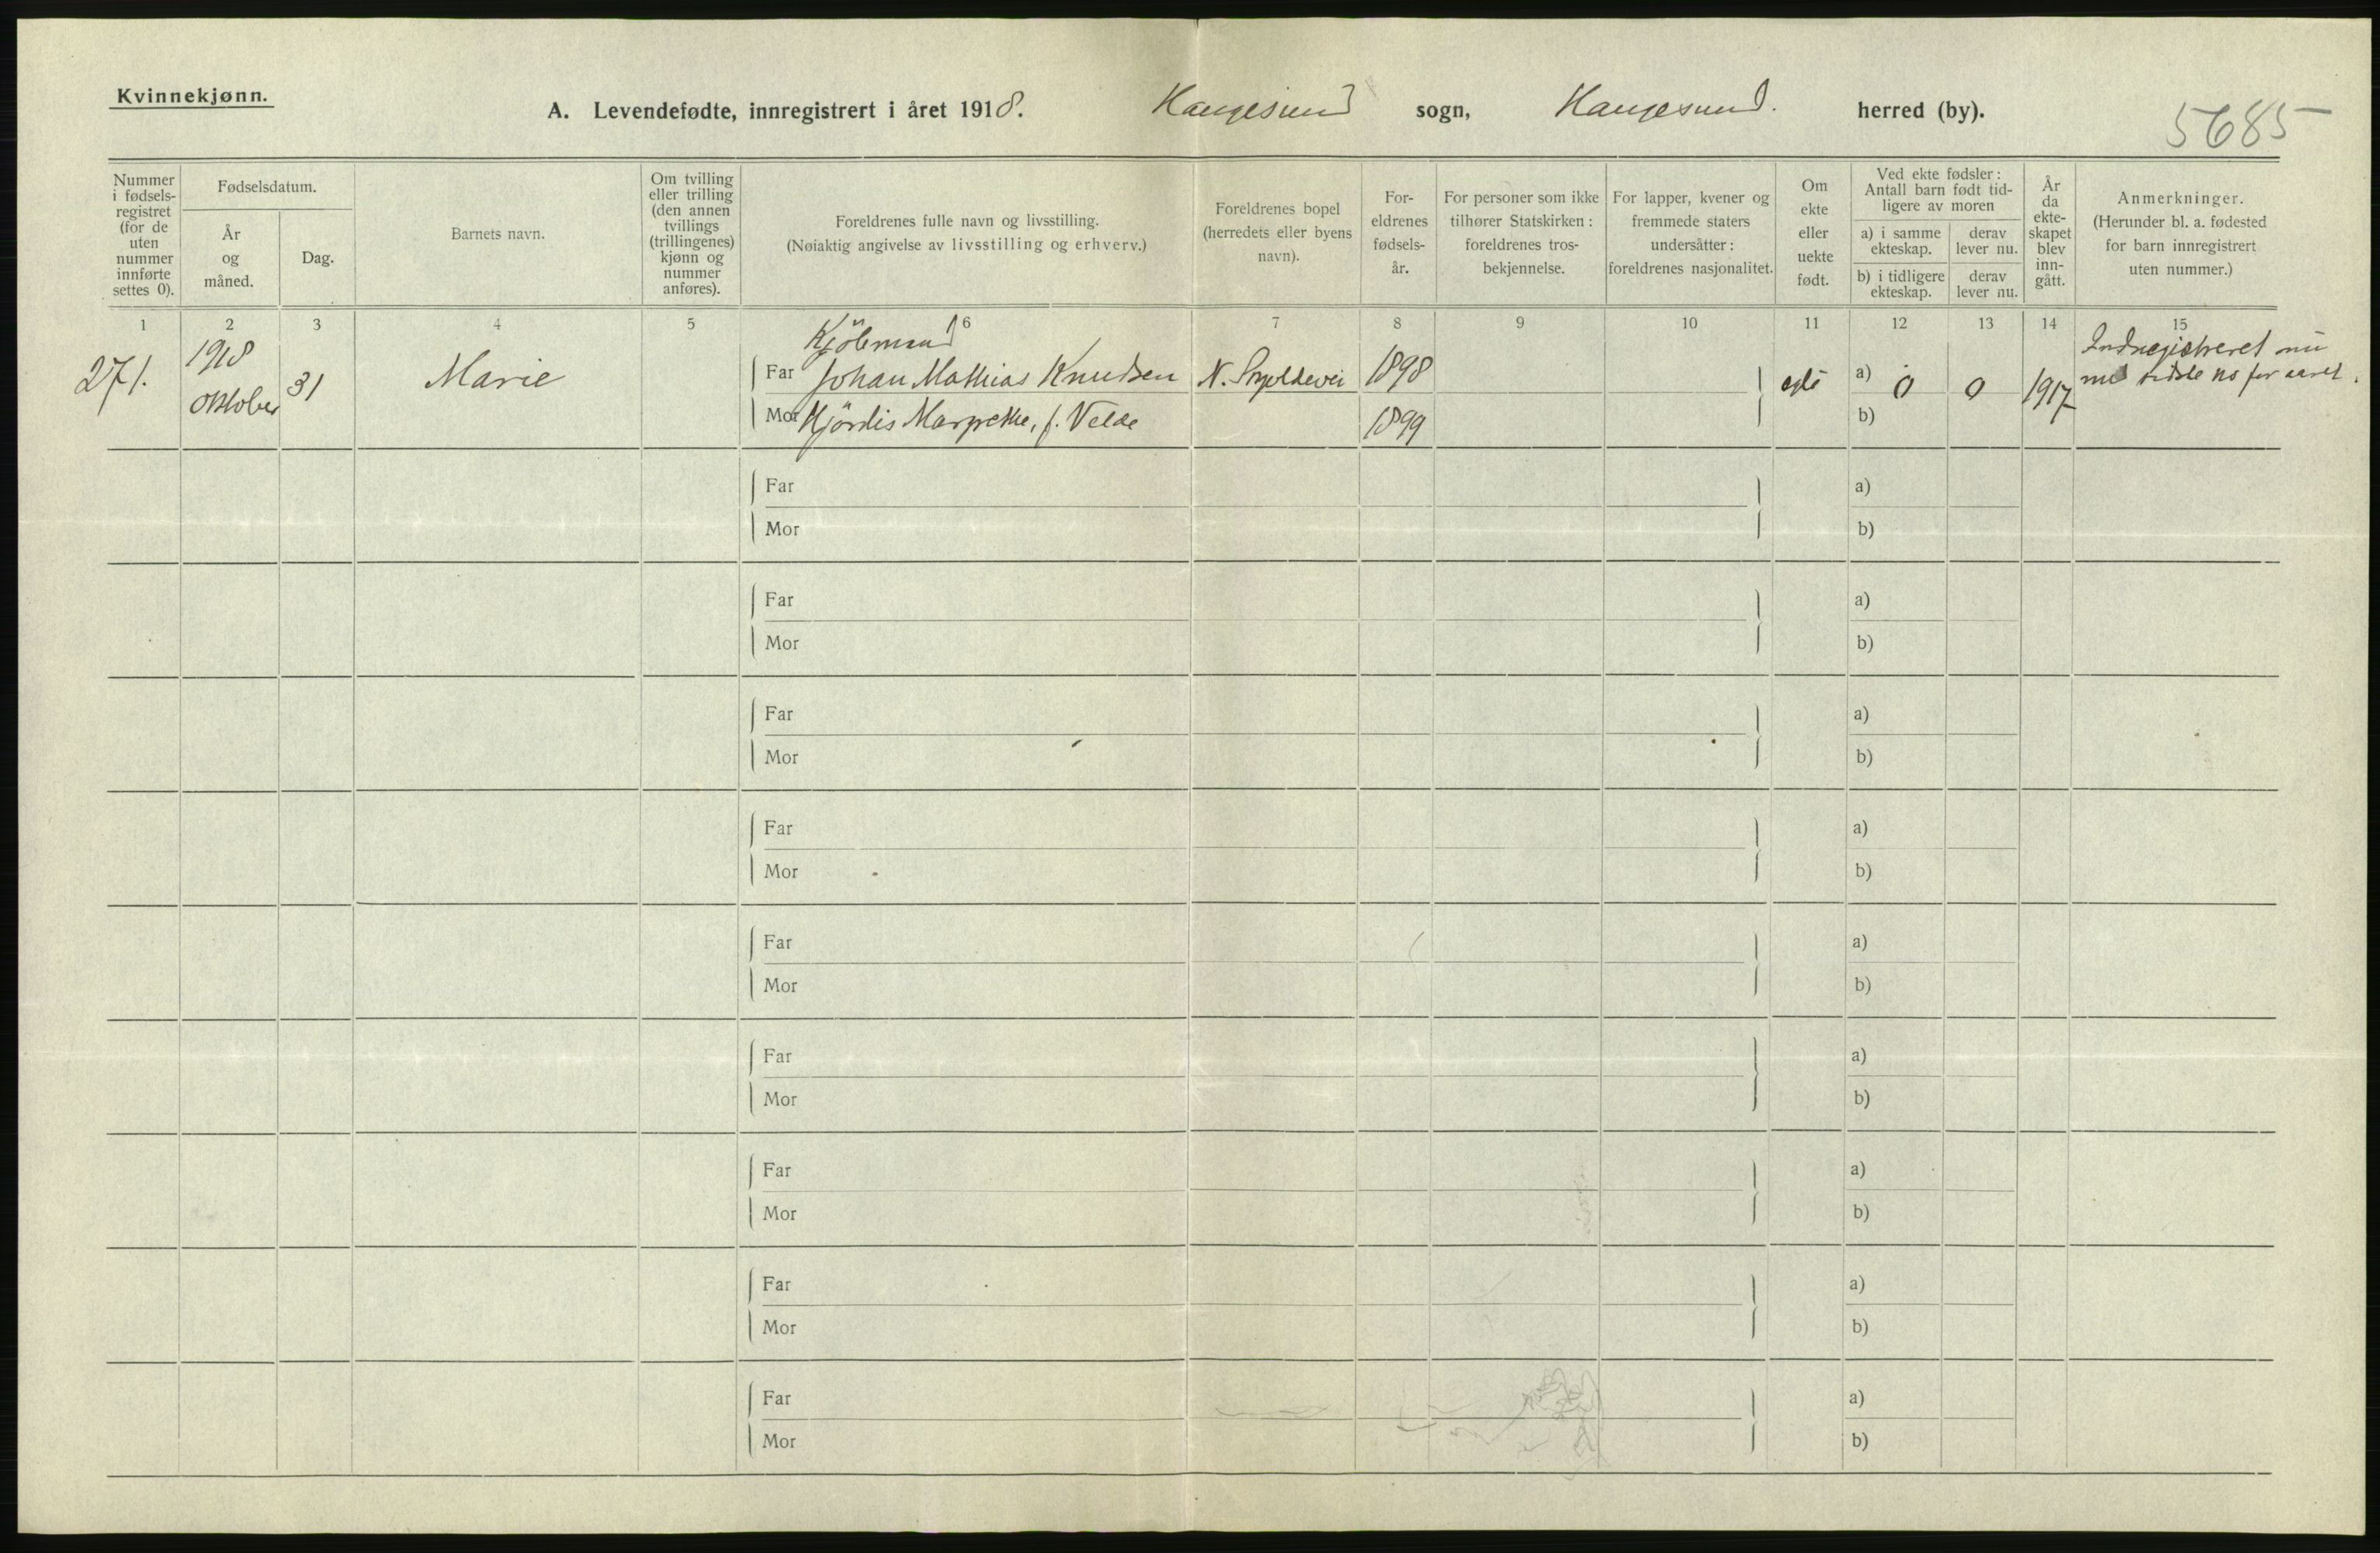 Kvinnekjønn.
A. Levendefødte, innregistrert i året 1918. Haugesund sogn, Haugesund. herred (by).
5685
Nummer i fødsels- registret (for de uten nummer innførte settes 0).
Fødselsdatum.
År og måned.
Dag.
Barnets navn.
Om tvilling eller trilling (den annen tvillings (trillingenes) kjønn og nummer anføres).
Foreldrenes fulle navn og livsstilling.
(Nøiaktig angivelse av livsstilling og erhverv.)
Foreldrenes bopel (herredets eller byens navn).
For- eldrenes fødsels- år.
For personer som ikke tilhører Statskirken: foreldrenes tros- bekjennelse.
For lapper, kvener og fremmede staters undersåtter: foreldrenes nasjonalitet.
Om ekte eller uekte født.
Ved ekte fødsler: Antall barn født tid- ligere av moren
a) i samme ekteskap.
derav lever nu.
b) i tidligere ekteskap.
derav lever nu.
År da ekte- skapet blev inn- gått.
Anmerkninger.
(Herunder bl. a. fødested for barn innregistrert uten nummer.)
1 2 3 4 5 6 7 8 9 10 11 12 13 14 15
271.
1918
Oktober
31
Marie
Kjöbmand
Far Johan Mathias Knudsen
Mor Hjördis Margrethe, f. Velde
N.
1898
1899
egte
a) 0 0
b)
1917
Indregistreret nu
med sidste no for aaret.
Far a)
Mor b)
Far a)
Mor b)
Far a)
Mor b)
Far a)
Mor b)
Far a)
Mor b)
Far a)
Mor b)
Far a)
Mor b)
Far a)
Mor b)
Far a)
Mor b)